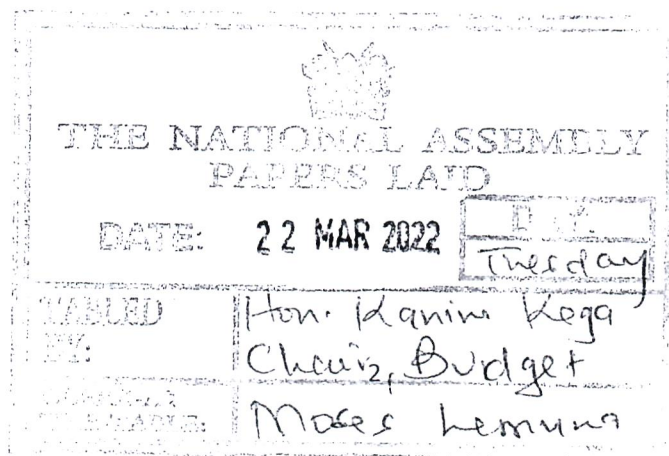 THE NATIONAL ASSEMBLY
PAPERS LAID
DATE: 22 MAR 2022 DAY.
Tuesday
TABLED BY: Hon. Kanini Kega
Chair, Budget
CLERK-AT THE-TABLE: Moses Lemuna